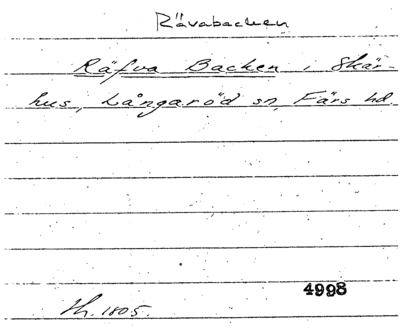 Rävabacken
Räfva Backen i Skär-
hus, Långaröd sn, Färs hd.
4998
Th. 1805.